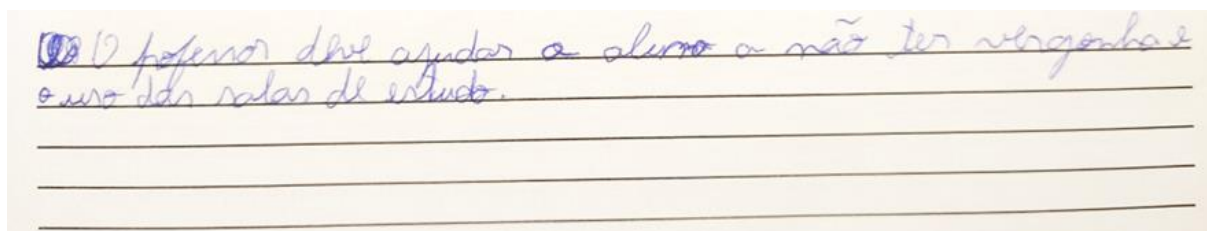 O pofessor deve ajudar o aluno a não ter vergonha e
o uso das salas de estudo.